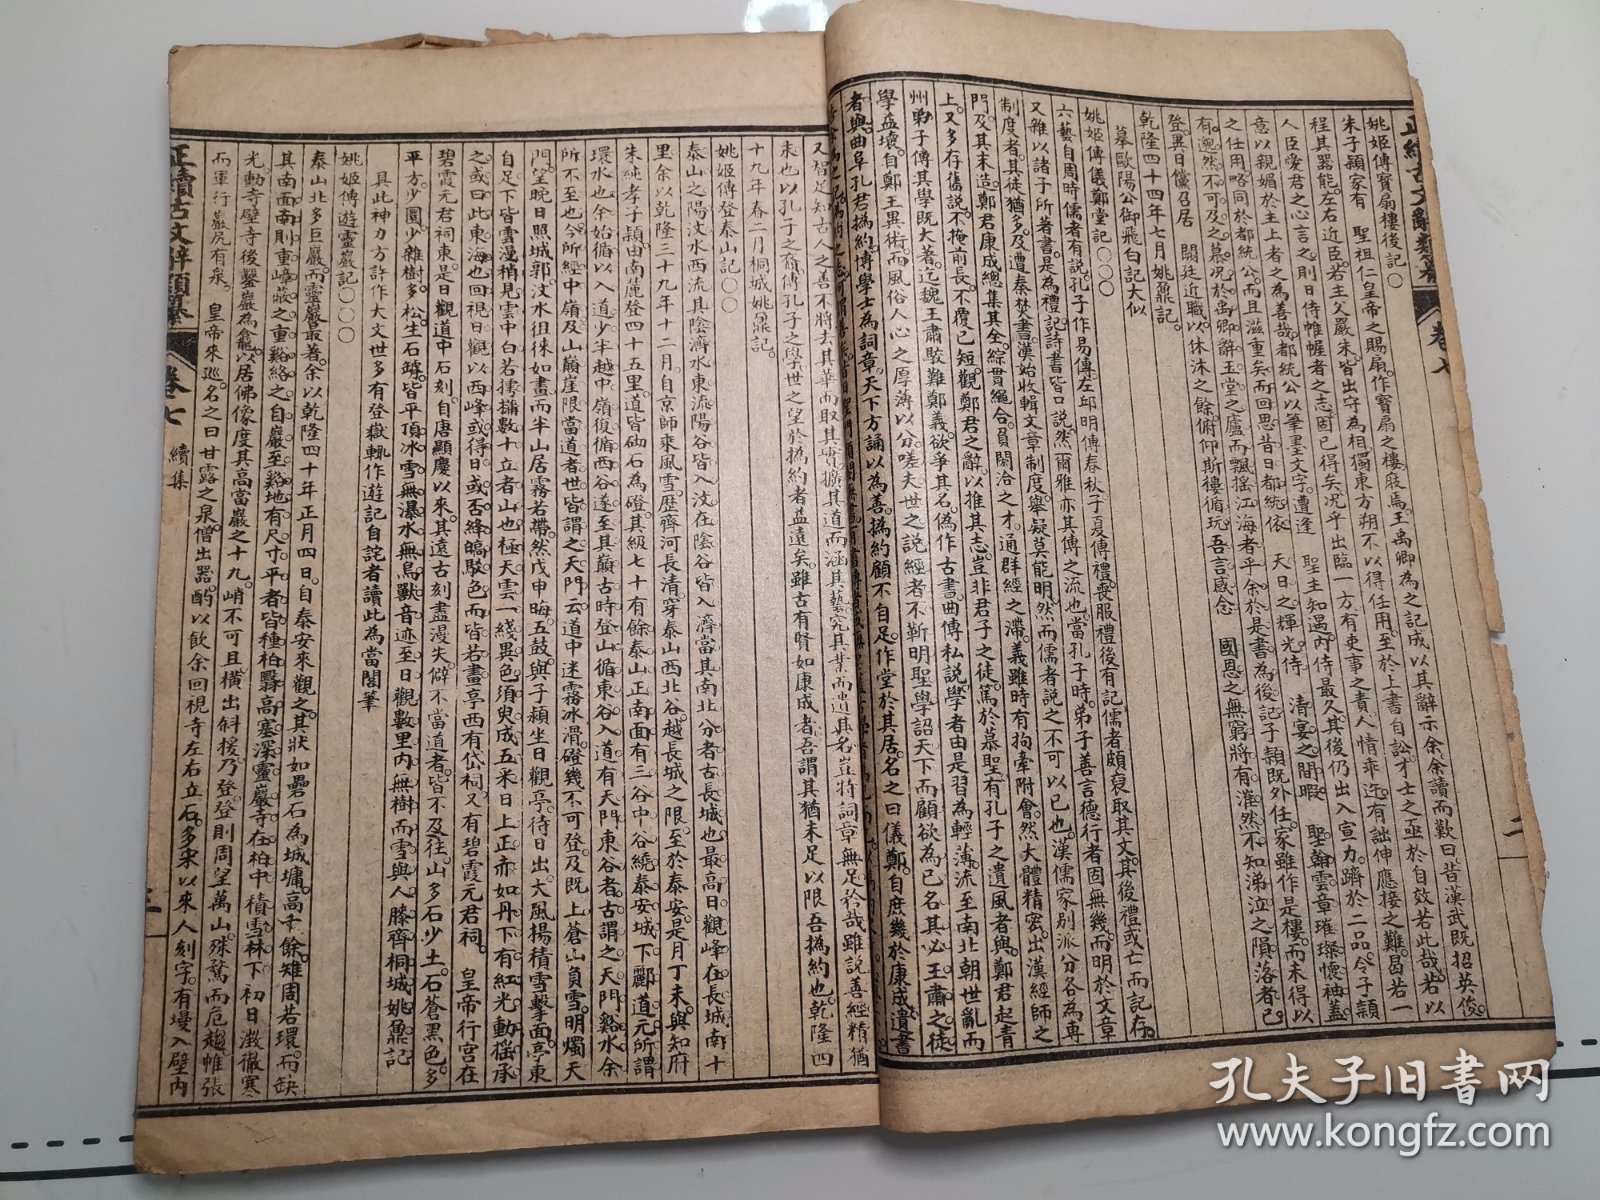 正續古文辭類纂 卷七 二
姚姬傳寶扇樓後記〇
朱子潁家有　聖祖仁皇帝之賜扇作寶扇之樓庪焉王禹卿為之記成以其辭示余余讀而歎曰昔漢武既招英俊
程其器能左右近臣若主父嚴朱皆出守為相獨東方朔不以得任用至於上書自訟才士之亟於自效若此哉若以
人臣愛君之心言之則日侍帷幄者之志固已得矣況乎出臨一方有吏事之責人情乖迕有詘伸應接之難曷若一
意以親媚於主上者之為善哉都統公以筆墨文字遭逢　聖主知遇內侍最久其後仍出入宣力躋於二品令子潁
之任用略同於都統公而且滋重矣而回思昔日都統依　天日之輝光侍　清宴之間暇　聖翰雲章璀璨懷袖蓋
有邈然不可及之慕況於禹卿辭玉堂之廬而飄搖江海者乎余於是書為後記子潁既外任家雖作是樓而未得以
登異日儻召居　闕廷近職以休沐之餘俯仰斯樓循玩吾言感念　國恩之無窮將有潅然不知涕泣之隕落者已
乾隆四十四年七月姚鼐記
摹歐陽公御飛白記大似
姚姬傳儀鄭堂記〇〇〇
六藝自周時儒者有說孔子作易傳左邱明傳春秋子夏傳禮喪服禮後有記儒者頗裒取其文其後禮或亡而記存
又雜以諸子所著書是為禮記詩書皆口說然爾雅亦其傳之流也當孔子時弟子善言德行者固無幾而明於文章
制度者其徒猶多及遭秦焚書漢始收輯文章制度舉疑莫能明然而儒者說之不可以已也漢儒家別派分各為專
門及其末造鄭君康成總集其全綜貫繩合負閎洽之才通群經之滯義雖時有拘牽附會然大體精密出漢經師之
上又多存舊說不掩前長不覆己短觀鄭君之辭以推其志豈非君子之徒篤於慕聖有孔子之遺風者與鄭君起青
州弟子傳其學既大著迄魏王肅駮難鄭義欲爭其名偽作古書曲傳私說學者由是習為輕薄流至南北朝世亂而
學益壞自鄭王異術而風俗人心之厚薄以分嗟夫世之說經者不蘄明聖學詔天下而顧欲為已名其必王肅之徒
者與曲阜孔君撝約博學士為詞章天下方誦以為善撝約顧不自足作堂於其居名之曰儀鄭自庶幾於康成遺書
又智足知古人之善不將去其華而取其實擴其道而涵其藝究其業而遺其名豈特詞章無足矜哉雖說善經精猶
未也以孔子之裔傳孔子之學世之望於撝約者益遠矣雖古有賢如康成者吾謂其猶未足以限吾撝約也乾隆四
十九年春二月桐城姚鼐記
姚姬傳登泰山記〇〇
泰山之陽汶水西流其陰濟水東流陽谷皆入汶在陰谷皆入濟當其南北分者古長城也最高日觀峰在長城南十
里余以乾隆三十九年十二月自京師來風雪歷齊河長清穿泰山西北谷越長城之限至於泰安是月丁未與知府
朱純孝子潁由南麓登四十五里道皆砌石為磴其級七千有餘泰山正南面有三谷中谷繞泰安城下酈道元所謂
環水也余始循以入道少半越中嶺復循西谷遂至其巔古時登山循東谷入道有天門東谷者古謂之天門谿水余
所不至也今所經中嶺及山巔崖限當道者世皆謂之天門云道中迷霧冰滑磴幾不可登及既上蒼山負雪明燭天
門望晚日照城郭汶水徂徠如畫而半山居霧若帶然戊申晦五鼓與子潁坐日觀亭待日出大風揚積雪擊面亭東
自足下皆雲漫稍見雲中白若摴蒱數十立者山也極天雲一綫異色須臾成五釆日上正赤如丹下有紅光動搖承
之或曰此東海也回視日觀以西峰或得日或否絳皜駮色而皆若畫亭西有岱祠又有碧霞元君祠　皇帝行宮在
碧霞元君祠東是日觀道中石刻自唐顯慶以來其遠古刻盡漫失僻不當道者皆不及往山多石少土石蒼黑色多
平方少圜少雜樹多松生石罅皆平頂冰雪無瀑水無鳥獸音迹至日觀數里內無樹而雪與人膝齊桐城姚鼐記
具此神力方許作大文世多有登嶽輒作遊記自詫者讀此為當閣筆
姚姬傳遊靈巖記〇〇〇
泰山北多巨巖而靈巖最著余以乾隆四十年正月四日自泰安來觀之其狀如壘石為城墉高千餘雉周若環而缺
其南面南則重嶂蔽之重谿絡之自巖至谿地有尺寸平者皆種柏翳高塞深靈巖寺在柏中積雪林下初日澂徹寒
光動寺壁寺後鑿巖為龕以居佛像度其高當巖之十九峭不可且橫出斜援乃登登則周望萬山殊騖而詭趣帷張
而軍行巖尻有泉　皇帝來巡名之曰甘露之泉僧出器酌以飲余回視寺左右立石多宋以來人刻字有墁入壁內
正續古文辭類纂 卷七 續集 三
孔夫子旧书网
www.kongfz.com